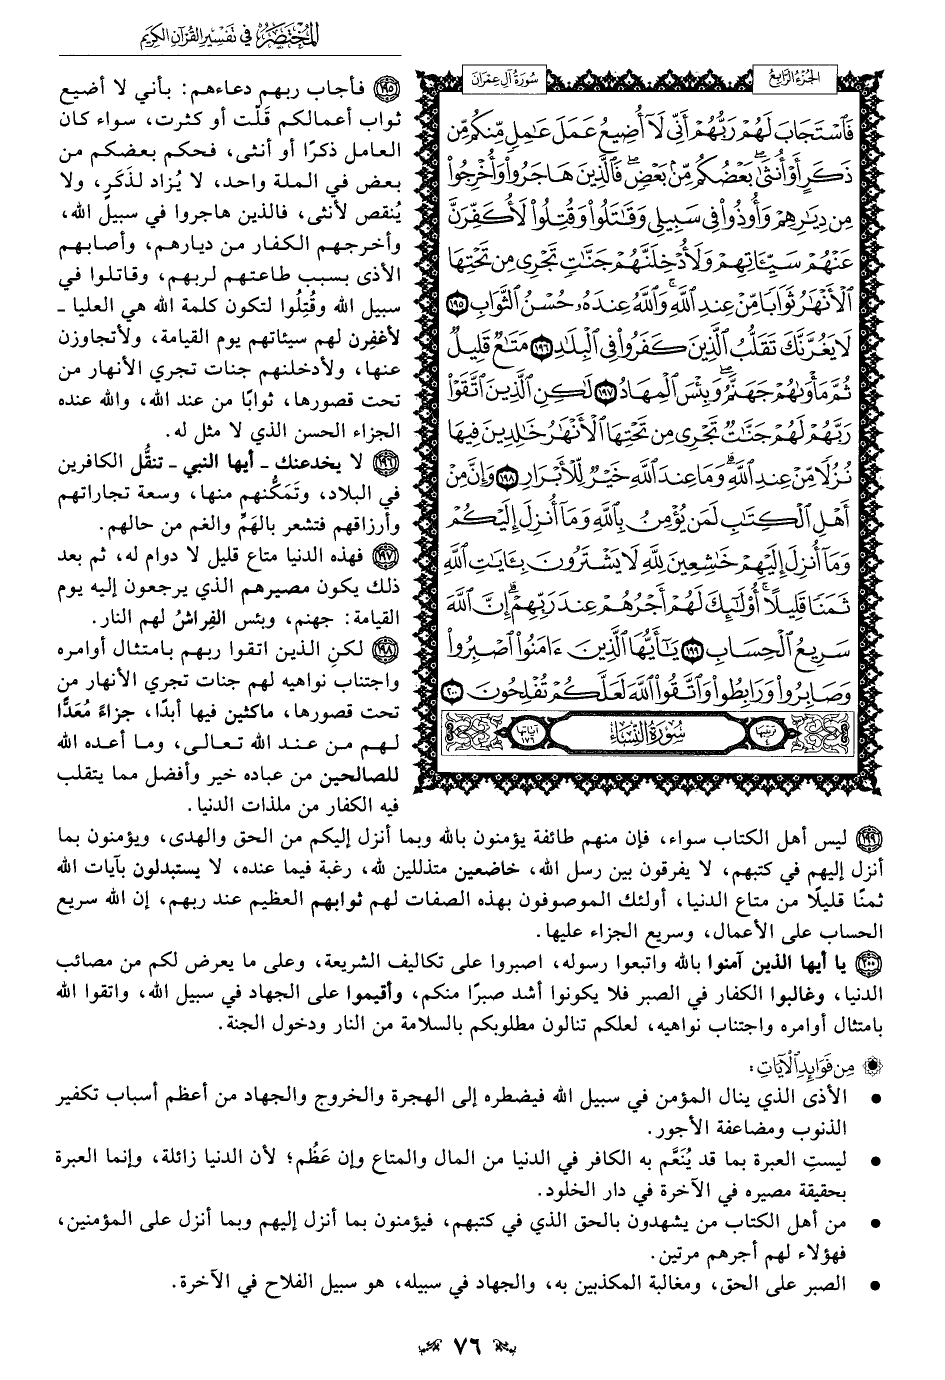 المختصر في تفسير القرآن الكريم
الجزء الرابع
سورة آل عمران
فَٱسْتَجَابَ لَهُمْ رَبُّهُمْ أَنِّى لَآ أُضِيعُ عَمَلَ عَٰمِلٍ مِّنكُم مِّن
ذَكَرٍ أَوْ أُنثَىٰ ۖ بَعْضُكُم مِّنۢ بَعْضٍ ۖ فَٱلَّذِينَ هَاجَرُوا۟ وَأُخْرِجُوا۟
مِن دِيَٰرِهِمْ وَأُوذُوا۟ فِى سَبِيلِى وَقَٰتَلُوا۟ وَقُتِلُوا۟ لَأُكَفِّرَنَّ
عَنْهُمْ سَيِّـَٔاتِهِمْ وَلَأُدْخِلَنَّهُمْ جَنَّٰتٍ تَجْرِى مِن تَحْتِهَا
ٱلْأَنْهَٰرُ ثَوَابًا مِّنْ عِندِ ٱللَّهِ ۗ وَٱللَّهُ عِندَهُۥ حُسْنُ ٱلثَّوَابِ ١٩٥
لَا يَغُرَّنَّكَ تَقَلُّبُ ٱلَّذِينَ كَفَرُوا۟ فِى ٱلْبِلَٰدِ ١٩٦ مَتَٰعٌ قَلِيلٌ
ثُمَّ مَأْوَىٰهُمْ جَهَنَّمُ ۚ وَبِئْسَ ٱلْمِهَادُ ١٩٧ لَٰكِنِ ٱلَّذِينَ ٱتَّقَوْا۟
رَبَّهُمْ لَهُمْ جَنَّٰتٌ تَجْرِى مِن تَحْتِهَا ٱلْأَنْهَٰرُ خَٰلِدِينَ فِيهَا
نُزُلًا مِّنْ عِندِ ٱللَّهِ ۗ وَمَا عِندَ ٱللَّهِ خَيْرٌ لِّلْأَبْرَارِ ١٩٨ وَإِنَّ مِنْ
أَهْلِ ٱلْكِتَٰبِ لَمَن يُؤْمِنُ بِٱللَّهِ وَمَآ أُنزِلَ إِلَيْكُمْ
وَمَآ أُنزِلَ إِلَيْهِمْ خَٰشِعِينَ لِلَّهِ لَا يَشْتَرُونَ بِـَٔايَٰتِ ٱللَّهِ
ثَمَنًا قَلِيلًا ۗ أُو۟لَٰٓئِكَ لَهُمْ أَجْرُهُمْ عِندَ رَبِّهِمْ ۗ إِنَّ ٱللَّهَ
سَرِيعُ ٱلْحِسَابِ ١٩٩ يَٰٓأَيُّهَا ٱلَّذِينَ ءَامَنُوا۟ ٱصْبِرُوا۟
وَصَابِرُوا۟ وَرَابِطُوا۟ وَٱتَّقُوا۟ ٱللَّهَ لَعَلَّكُمْ تُفْلِحُونَ ٢٠٠
ترتيبها ٤
سورة النساء
آياتها ١٧٦
١٩٥ فأجاب ربهم دعاءهم: بأني لا أضيع
ثواب أعمالكم قَلَّت أو كثرت، سواء كان
العامل ذكرًا أو أنثى، فحكم بعضكم من
بعض في الملة واحد، لا يُزاد لذَكَرٍ، ولا
يُنقص لأنثى، فالذين هاجروا في سبيل الله،
وأخرجهم الكفار من ديارهم، وأصابهم
الأذى بسبب طاعتهم لربهم، وقاتلوا في
سبيل الله وقُتِلُوا لتكون كلمة الله هي العليا -
لأغفِرن لهم سيئاتهم يوم القيامة، ولأتجاوزن
عنها، ولأدخلنهم جنات تجري الأنهار من
تحت قصورها، ثوابًا من عند الله، والله عنده
الجزاء الحسن الذي لا مثل له.
١٩٦ لا يخدعنك - أيها النبي - تنقُّل الكافرين
في البلاد، وتَمَكُّنهم منها، وسعة تجاراتهم
وأرزاقهم فتشعر بالهَمِّ والغم من حالهم.
١٩٧ فهذه الدنيا متاع قليل لا دوام له، ثم بعد
ذلك يكون مصيرهم الذي يرجعون إليه يوم
القيامة: جهنم، وبئس الفِراشُ لهم النار.
١٩٨ لكنِ الذين اتقوا ربهم بامتثال أوامره
واجتناب نواهيه لهم جنات تجري الأنهار من
تحت قصورها، ماكثين فيها أبدًا، جزاءً مُعَدًّا
لهم من عند الله تعالى، وما أعده الله
للصالحين من عباده خير وأفضل مما يتقلب
فيه الكفار من ملذات الدنيا.
١٩٩ ليس أهل الكتاب سواء، فإن منهم طائفة يؤمنون بالله وبما أنزل إليكم من الحق والهدى، ويؤمنون بما
أنزل إليهم في كتبهم، لا يفرقون بين رسل الله، خاضعين متذللين لله، رغبة فيما عنده، لا يستبدلون بآيات الله
ثمنًا قليلًا من متاع الدنيا، أولئك الموصوفون بهذه الصفات لهم ثوابهم العظيم عند ربهم، إن الله سريع
الحساب على الأعمال، وسريع الجزاء عليها.
٢٠٠ يا أيها الذين آمنوا بالله واتبعوا رسوله، اصبروا على تكاليف الشريعة، وعلى ما يعرض لكم من مصائب
الدنيا، وغالبوا الكفار في الصبر فلا يكونوا أشد صبرًا منكم، وأقيموا على الجهاد في سبيل الله، واتقوا الله
بامتثال أوامره واجتناب نواهيه، لعلكم تنالون مطلوبكم بالسلامة من النار ودخول الجنة.
من فوائد الآيات:
• الأذى الذي ينال المؤمن في سبيل الله فيضطره إلى الهجرة والخروج والجهاد من أعظم أسباب تكفير
الذنوب ومضاعفة الأجور.
• ليستِ العبرة بما قد يُنَعَّم به الكافر في الدنيا من المال والمتاع وإن عَظُم؛ لأن الدنيا زائلة، وإنما العبرة
بحقيقة مصيره في الآخرة في دار الخلود.
• من أهل الكتاب من يشهدون بالحق الذي في كتبهم، فيؤمنون بما أنزل إليهم وبما أنزل على المؤمنين،
فهؤلاء لهم أجرهم مرتين.
• الصبر على الحق، ومغالبة المكذبين به، والجهاد في سبيله، هو سبيل الفلاح في الآخرة.
٧٦